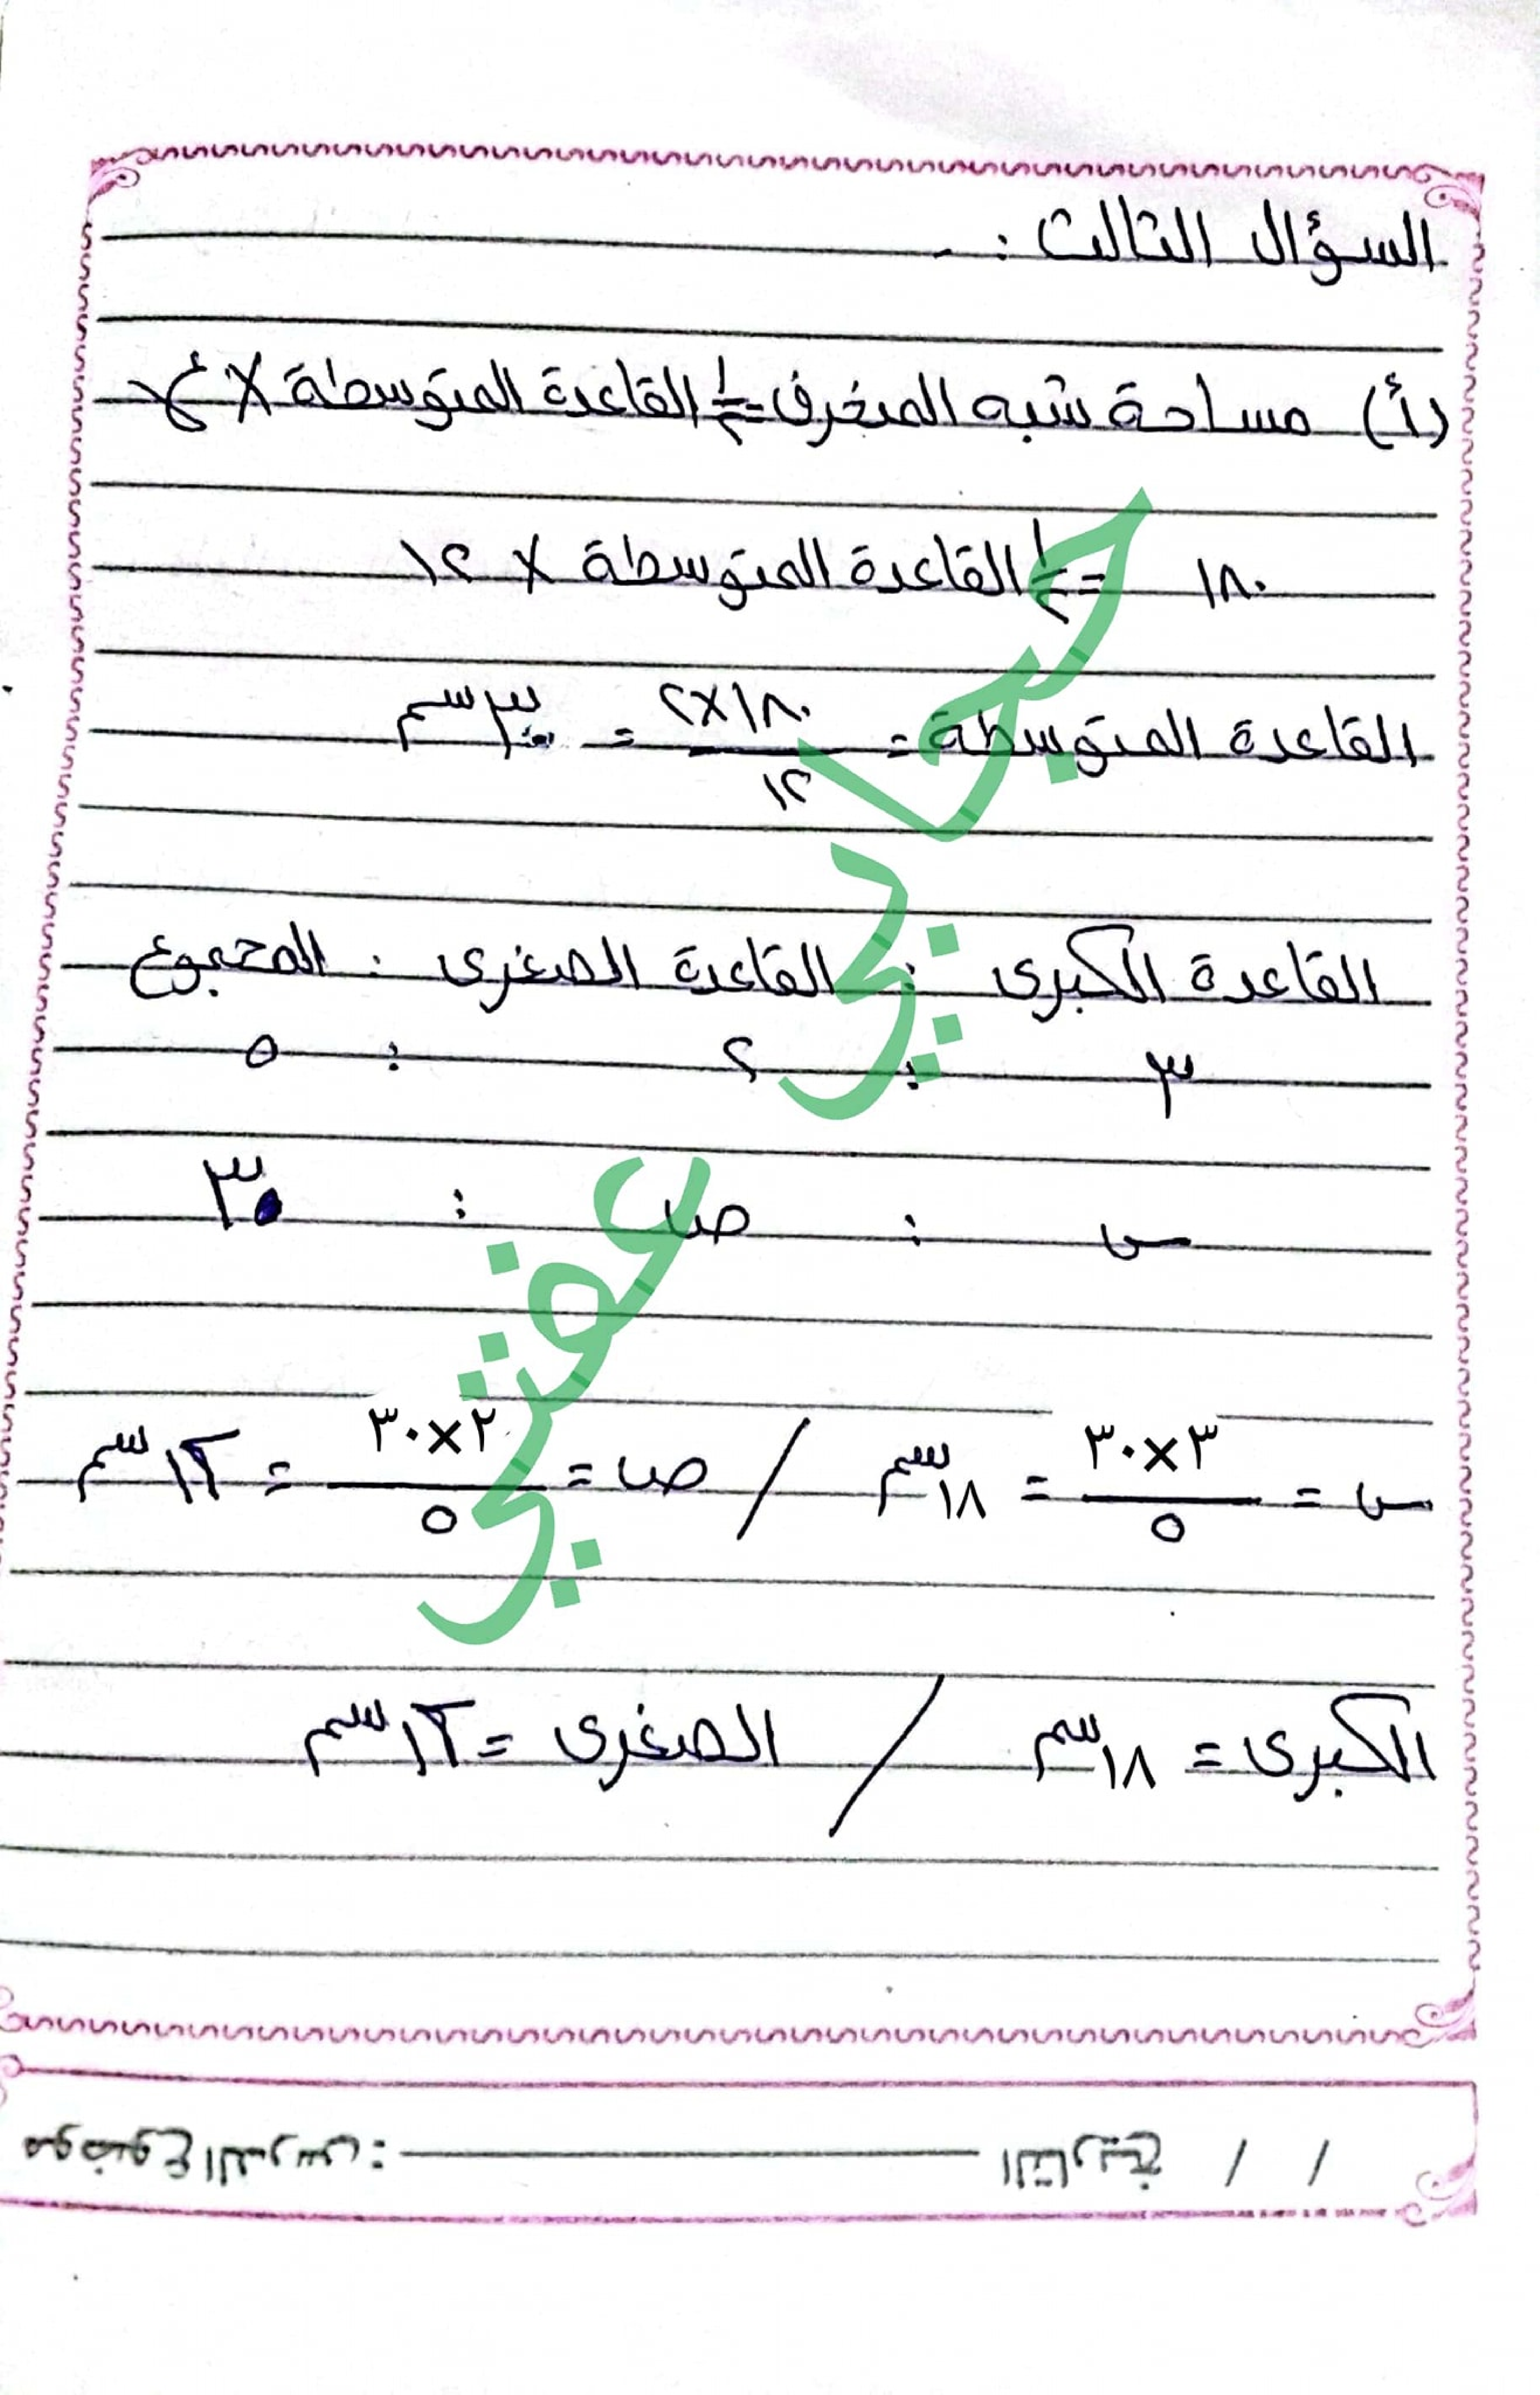 السؤال الثالث :-
(أ) مساحة شبه المنحرف = ١/٢ القاعدة المتوسطة × ع
١٨٠ = ١/٢ القاعدة المتوسطة × ١٢
القاعدة المتوسطة = ١٨٠×٢ / ١٢ = ٣٠ سم
القاعدة الكبرى : القاعدة الصغرى : المجموع
٣ : ٢ : ٥
س : ص : ٣٠
س = ٣×٣٠ / ٥ = ١٨ سم / ص = ٢×٣٠ / ٥ = ١٢ سم
الكبرى = ١٨ سم / الصغرى = ١٢ سم
التاريخ / /
عفيفي